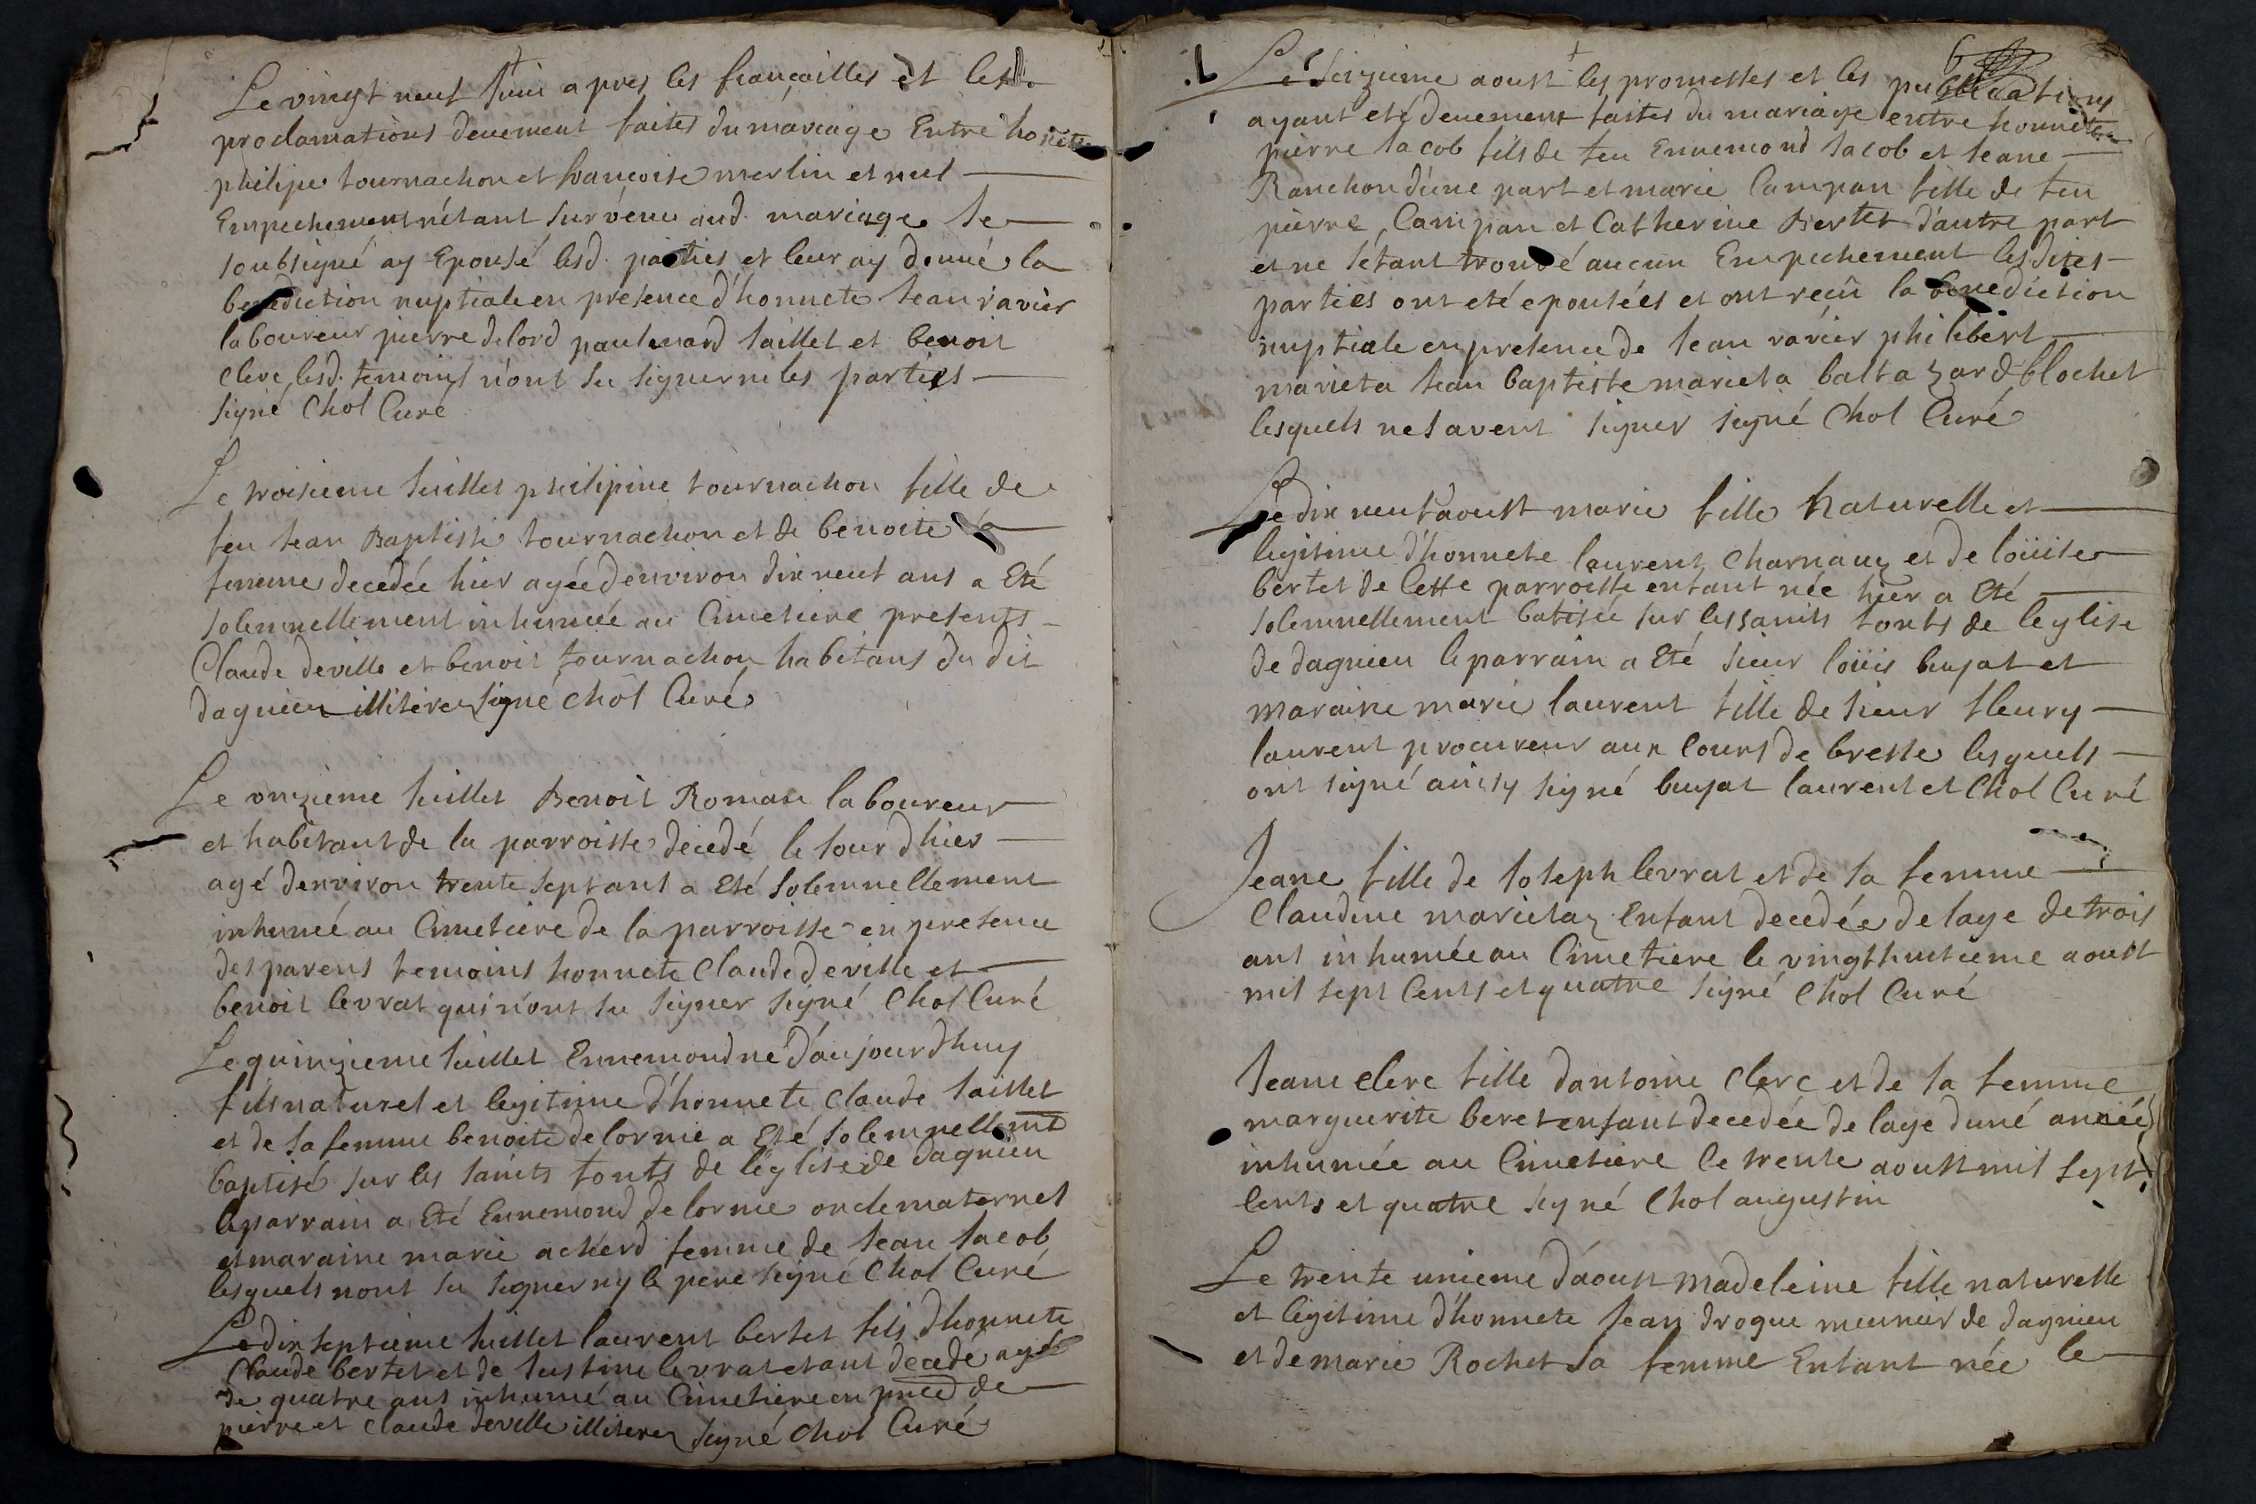 Le vingt neuf Juin apres les fiançailles et les
proclamations deuement faites du mariage Entre honete
philipe tournachon et françoise merlin et nul
Empechement n'étant survénu aud. mariage Je
soubsigné ay Epousé lesd. parties et leur ay donné la
benediction nuptiale en presence d'honnete Jean ravier
laboureur pierre delord paul Jaillet et benoit
clerc lesd. temoins n'ont su signer ni les parties
signé Chol Curé
Le troisieme Juillet philipine tournachon fille de
feu Jean Baptiste tournachon et de benoite sa
femme decedée hier agée denviron dix neuf ans a Eté
solemnellement inhumée au Cimetiere presents
Claude deville et benoit tournachon habitans du dit
dagnieu illiterez signé Chol Curé
Le onzieme Juillet Benoit Roman laboureur
et habitant de la parroisse decedé le Jour dhier
agé denviron trente sept ans a Eté solemnellement
inhumé au Cimetiere de la parroisse en presence
des parens temoins honnete Claude deville et
benoit levrat qui n'ont su signer signé Chol Curé
Le quinzieme Juillet Ennemond né d'aujourdhuy
fils naturel et legitime d'honnete Claude Jaillet
et de sa femme benoite delorme a Eté solemnellemt
baptisé sur les saints fonts de léglise de dagnieu
le parrain a Eté Ennemond delorme oncle maternel
et maraine marie acherd femme de Jean Jacob
lesquels nont su signer ny le pere signé Chol Curé
Le dix septieme Juillet laurent bertet fils d'honnete
Claude bertet et de Justine levrat etant decedé agé
de quatre ans inhumé au Cimetiere en prnce de
pierre et Claude deville illiterez signé Chol Curé
6
Le seizieme aoust les promesses et les publications
ayant eté deuement faites du mariage entre honnete
pierre Jacob fils de feu Ennemond Jacob et Jeane
Ranchon d'une part et marie Campan fille de feu
pierre Campan et Catherine Bertet d'autre part
et ne s'étant trouvé aucun Empechement lesdites
parties ont eté epousées et ont reçû la benediction
nuptiale en presence de Jean ravier philibert
marieta Jean baptiste marieta baltazard blochet
lesquels ne savent signer signé Chol Curé
Le dix neuf aoust marie fille Naturelle et
legitime d'honnete laurent Charnauz et de loüise
bertet de Cette parroisse enfant née hier a Eté
solemnellement batisée sur les saints fonts de leglise
de dagnieu le parrain a Eté sieur loüis bujat et
maraine marie laurent fille de sieur fleury
laurent procureur aux Cours de bresse lesquels
ont signé ainsy signé bujat laurent et Chol Curé
Jeane fille de Joseph levrat et de sa femme
Claudine marietaz Enfant decedée de lage de trois
ans inhumée au Cimetiere le vingthuitieme aoust
mil sept Cents et quatre signé Chol Curé
Jeane clerc fille dantoine Clerc et de sa femme
marguerite beret enfant decedée de lage duné année
inhumée au Cimetiere le trente aoust mil sept
Cents et quatre signé Chol augustin
Le trente unieme d'aoust Madeleine fille naturelle
et legitime d'honnete Jean drogue meunier de dagnieu
et de marie Rochet sa femme Enfant née le